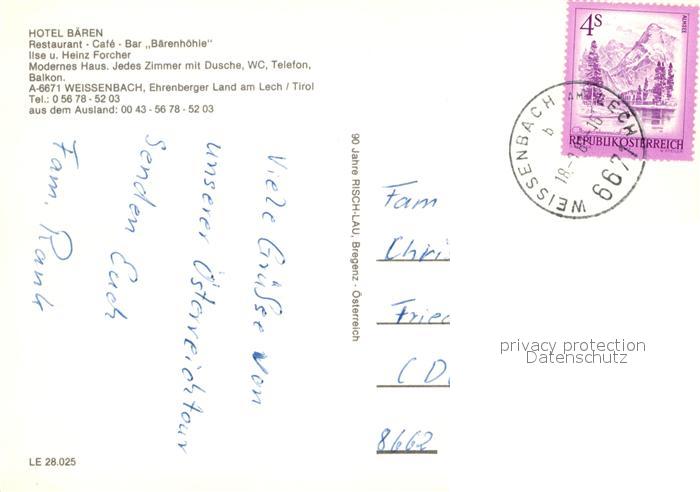 HOTEL BÄREN
Restaurant - Café - Bar „Bärenhöhle"
Ilse u. Heinz Forcher
Modernes Haus. Jedes Zimmer mit Dusche, WC, Telefon,
Balkon.
A-6671 WEISSENBACH, Ehrenberger Land am Lech / Tirol
Tel.: 0 56 78 - 52 03
aus dem Ausland: 00 43 - 56 78 - 52 03
Viele Grüße von
unserer Österreichtour
senden Euch
Fam. Rank
LE 28.025
90 Jahre RISCH-LAU, Bregenz - Österreich
4S
ALMSEE
REPUBLIK ÖSTERREICH
6671 WEISSENBACH AM LECH
b
Fam
Chri
Fried
(D
8662
privacy protection
Datenschutz